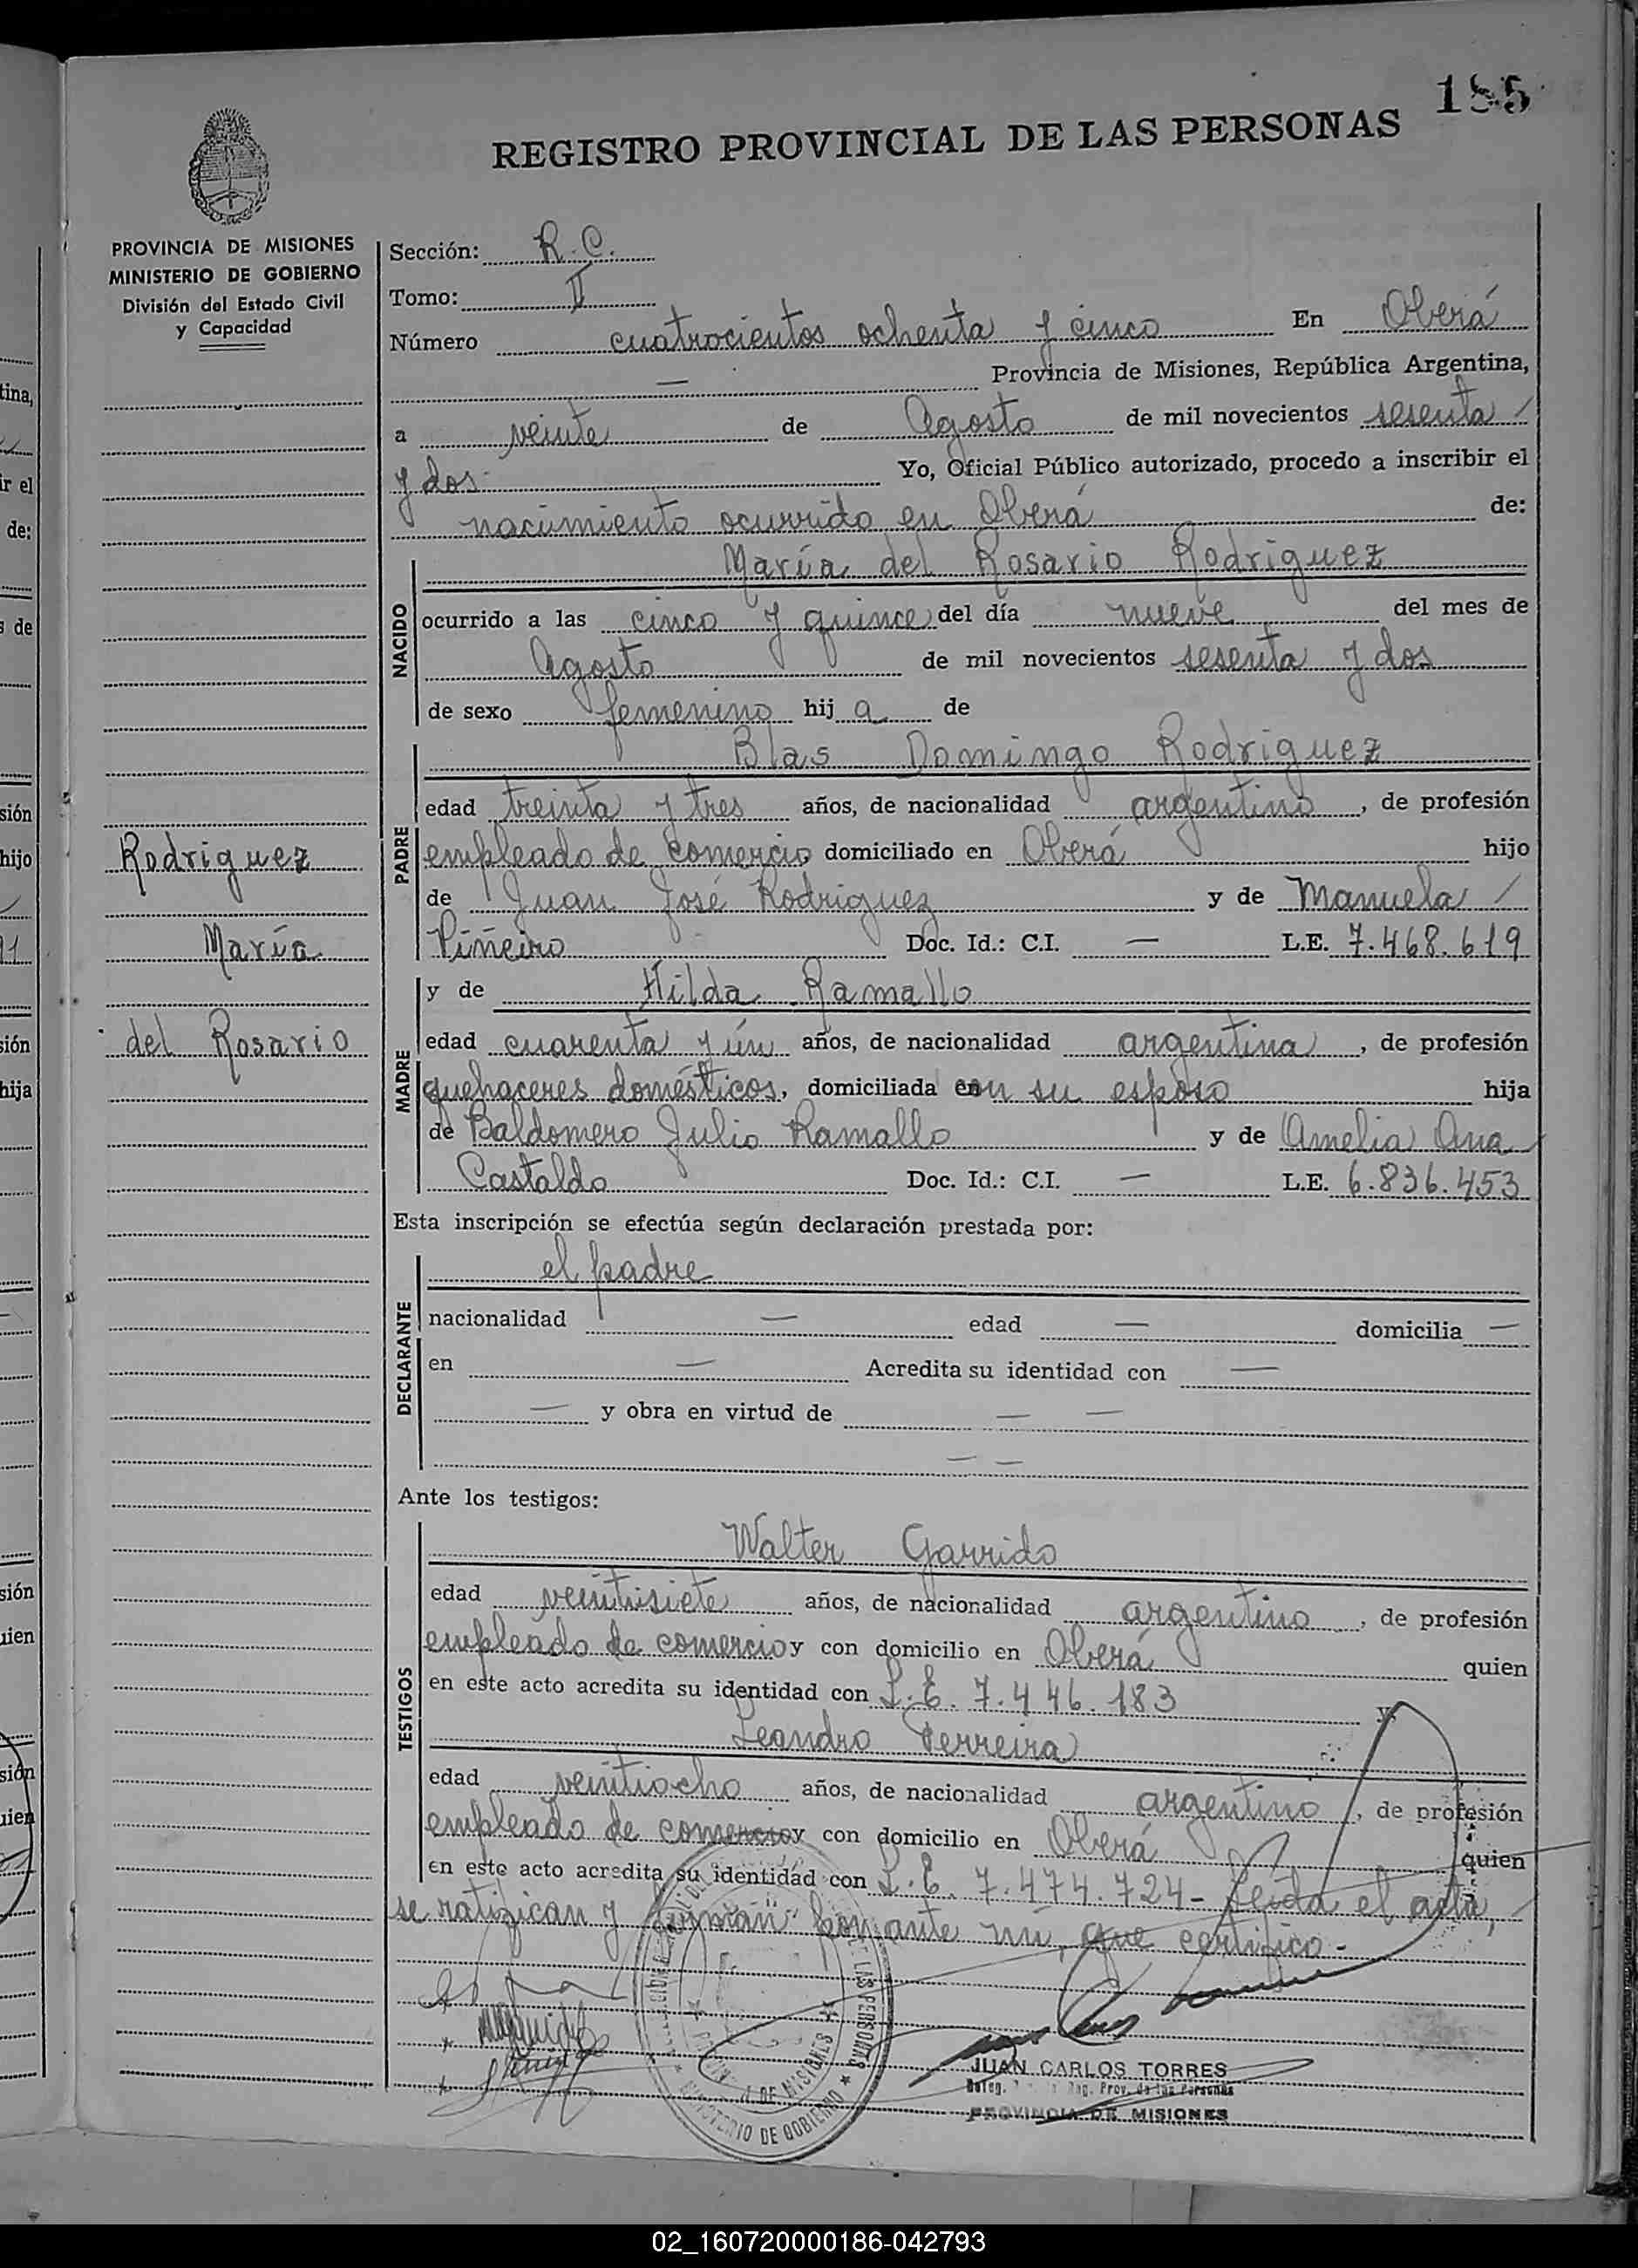 185
REGISTRO PROVINCIAL DE LAS PERSONAS
PROVINCIA DE MISIONES
MINISTERIO DE GOBIERNO
División del Estado Civil
y Capacidad
Sección: R.C.
Tomo: II
Número cuatrocientos ochenta y cinco En Oberá
— Provincia de Misiones, República Argentina,
a veinte de Agosto de mil novecientos sesenta
y dos Yo, Oficial Público autorizado, procedo a inscribir el
nacimiento ocurrido en Oberá de:
NACIDO
María del Rosario Rodriguez
ocurrido a las cinco y quince del día nueve del mes de
Agosto de mil novecientos sesenta y dos
de sexo femenino hij a de
PADRE
Blas Domingo Rodriguez
edad treinta y tres años, de nacionalidad argentino, de profesión
empleado de comercio domiciliado en Oberá hijo
de Juan José Rodriguez y de Manuela
Piñeiro Doc. Id.: C.I. — L.E. 7.468.619
Rodriguez
María
del Rosario
MADRE
y de Hilda Ramallo
edad cuarenta y ún años, de nacionalidad argentina, de profesión
quehaceres domésticos, domiciliada con su esposo hija
de Baldomero Julio Ramallo y de Amelia Ana
Castaldo Doc. Id.: C.I. — L.E. 6.836.453
Esta inscripción se efectúa según declaración prestada por:
DECLARANTE
el padre
nacionalidad — edad — domicilia —
en — Acredita su identidad con —
— y obra en virtud de — —
— —
Ante los testigos:
TESTIGOS
Walter Garrido
edad veintisiete años, de nacionalidad argentino, de profesión
empleado de comercio y con domicilio en Oberá quien
en este acto acredita su identidad con L.E. 7.446.183 y
Leandro Ferreira
edad veintiocho años, de nacionalidad argentino, de profesión
empleado de comercio y con domicilio en Oberá quien
en este acto acredita su identidad con L.E. 7.474.724- Leida el acta,
se ratifican y firman por ante mi, que certifico-
JUAN CARLOS TORRES
Reg. Prov. de las Personas
PROVINCIA DE MISIONES
LAS PERSONAS
DE MISIONES
MINISTERIO DE GOBIERNO
02_160720000186-042793